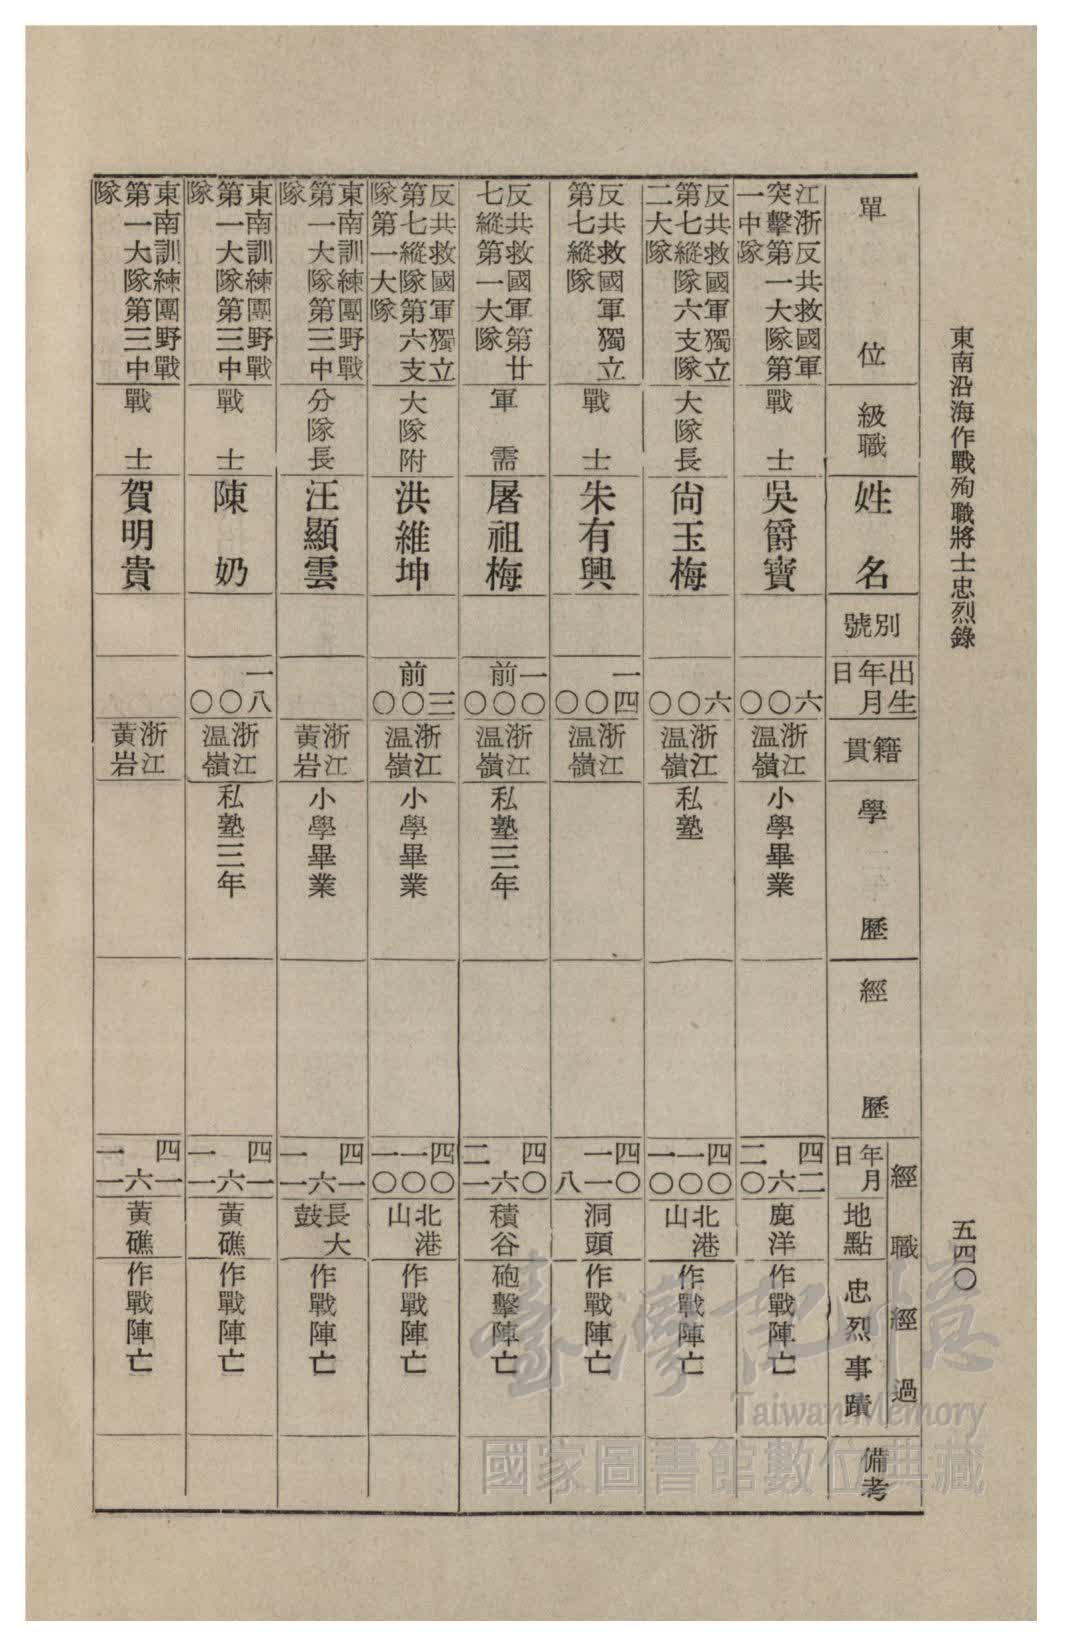 東南沿海作戰殉職將士忠烈錄
五四〇
單位
級職
姓名
別號
出生年月日
籍貫
學歷
經歷
經職經過
年月日
地點
忠烈事蹟
備考
江浙反共救國軍
突擊第一大隊第
一中隊
戰士
吳爵寶
六
〇
〇
浙江
温嶺
小學畢業
四二
六
二〇
鹿洋
作戰陣亡
反共救國軍獨立
第七縱隊六支隊
二大隊
大隊長
尙玉梅
六
〇
〇
浙江
温嶺
私塾
四〇
一〇
一〇
北港
山
作戰陣亡
反共救國軍獨立
第七縱隊
戰士
朱有興
一四
〇
〇
浙江
温嶺
四〇
一一
八
洞頭
作戰陣亡
反共救國軍第廿
七縱第一大隊
軍需
屠祖梅
前一〇
〇
〇
浙江
温嶺
私塾三年
四〇
六
二一
積谷
砲擊陣亡
反共救國軍獨立
第七縱隊第六支
隊第一大隊
大隊附
洪維坤
前三
〇
〇
浙江
温嶺
小學畢業
四〇
一〇
一〇
北港
山
作戰陣亡
東南訓練團野戰
第一大隊第三中
隊
分隊長
汪顯雲
浙江
黃岩
小學畢業
四一
六
一一
長大
鼓
作戰陣亡
東南訓練團野戰
第一大隊第三中
隊
戰士
陳奶
一八
〇
〇
浙江
温嶺
私塾三年
四一
六
一一
黃礁
作戰陣亡
東南訓練團野戰
第一大隊第三中
隊
戰士
賀明貴
浙江
黃岩
四一
六
一一
黃礁
作戰陣亡
臺灣記憶
Taiwan Memory
國家圖書館數位典藏